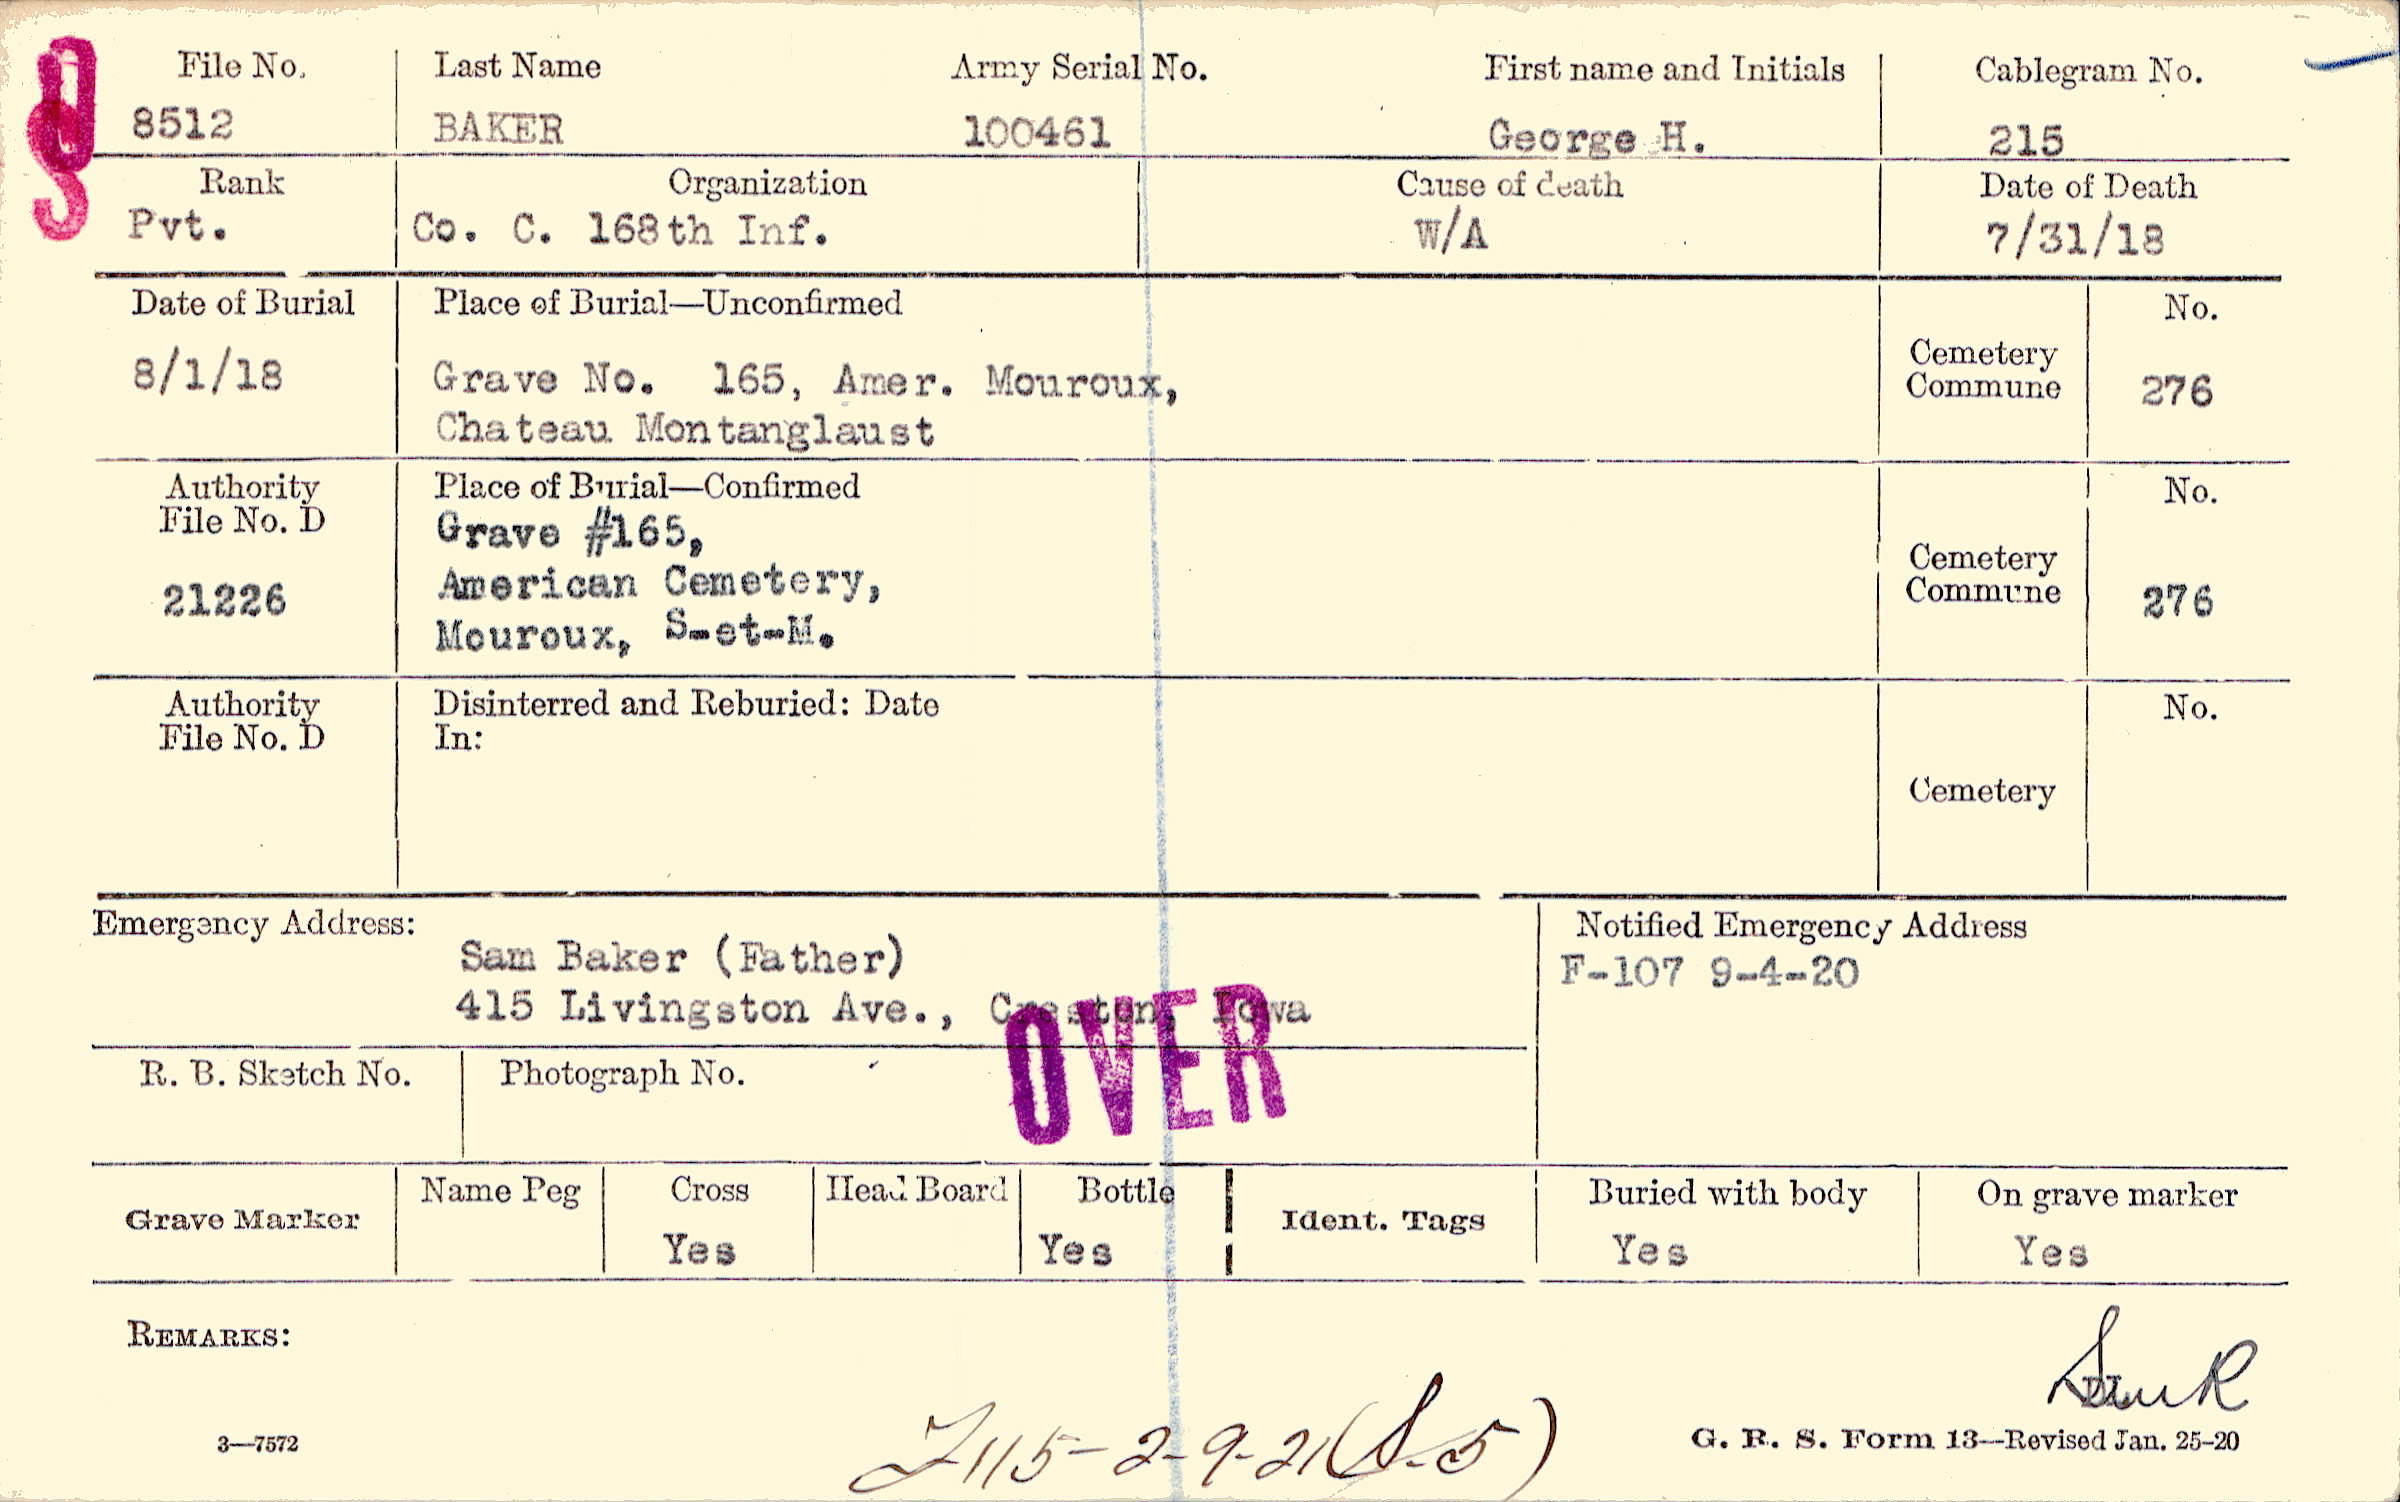 File No. Last Name Army Serial No. First name and Initials Cablegram No.
8512 BAKER 100461 George H. 215
Rank Organization Cause of death Date of Death
Pvt. Co. C. 168th Inf. W/A 7/31/18
Date of Burial Place of Burial—Unconfirmed No.
8/1/18 Grave No. 165, Amer. Mouroux, Cemetery Commune 276
Chateau Montanglaust
Authority Place of Burial—Confirmed No.
File No. D Grave #165,
21226 American Cemetery, Cemetery Commune 276
Mouroux, S-et-M.
Authority Disinterred and Reburied: Date No.
File No. D In:
Cemetery
Emergency Address: Notified Emergency Address
Sam Baker (Father) F-107 9-4-20
415 Livingston Ave., Creston, Iowa
OVER
R. B. Sketch No. Photograph No.
Grave Marker Name Peg Cross Head Board Bottle Ident. Tags Buried with body On grave marker
Yes Yes Yes Yes
REMARKS:
115-2-9-21 (S-5)
3—7572 G. R. S. Form 13—Revised Jan. 25-20